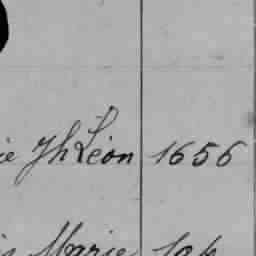 ie Jh Léon 1656
is Marie